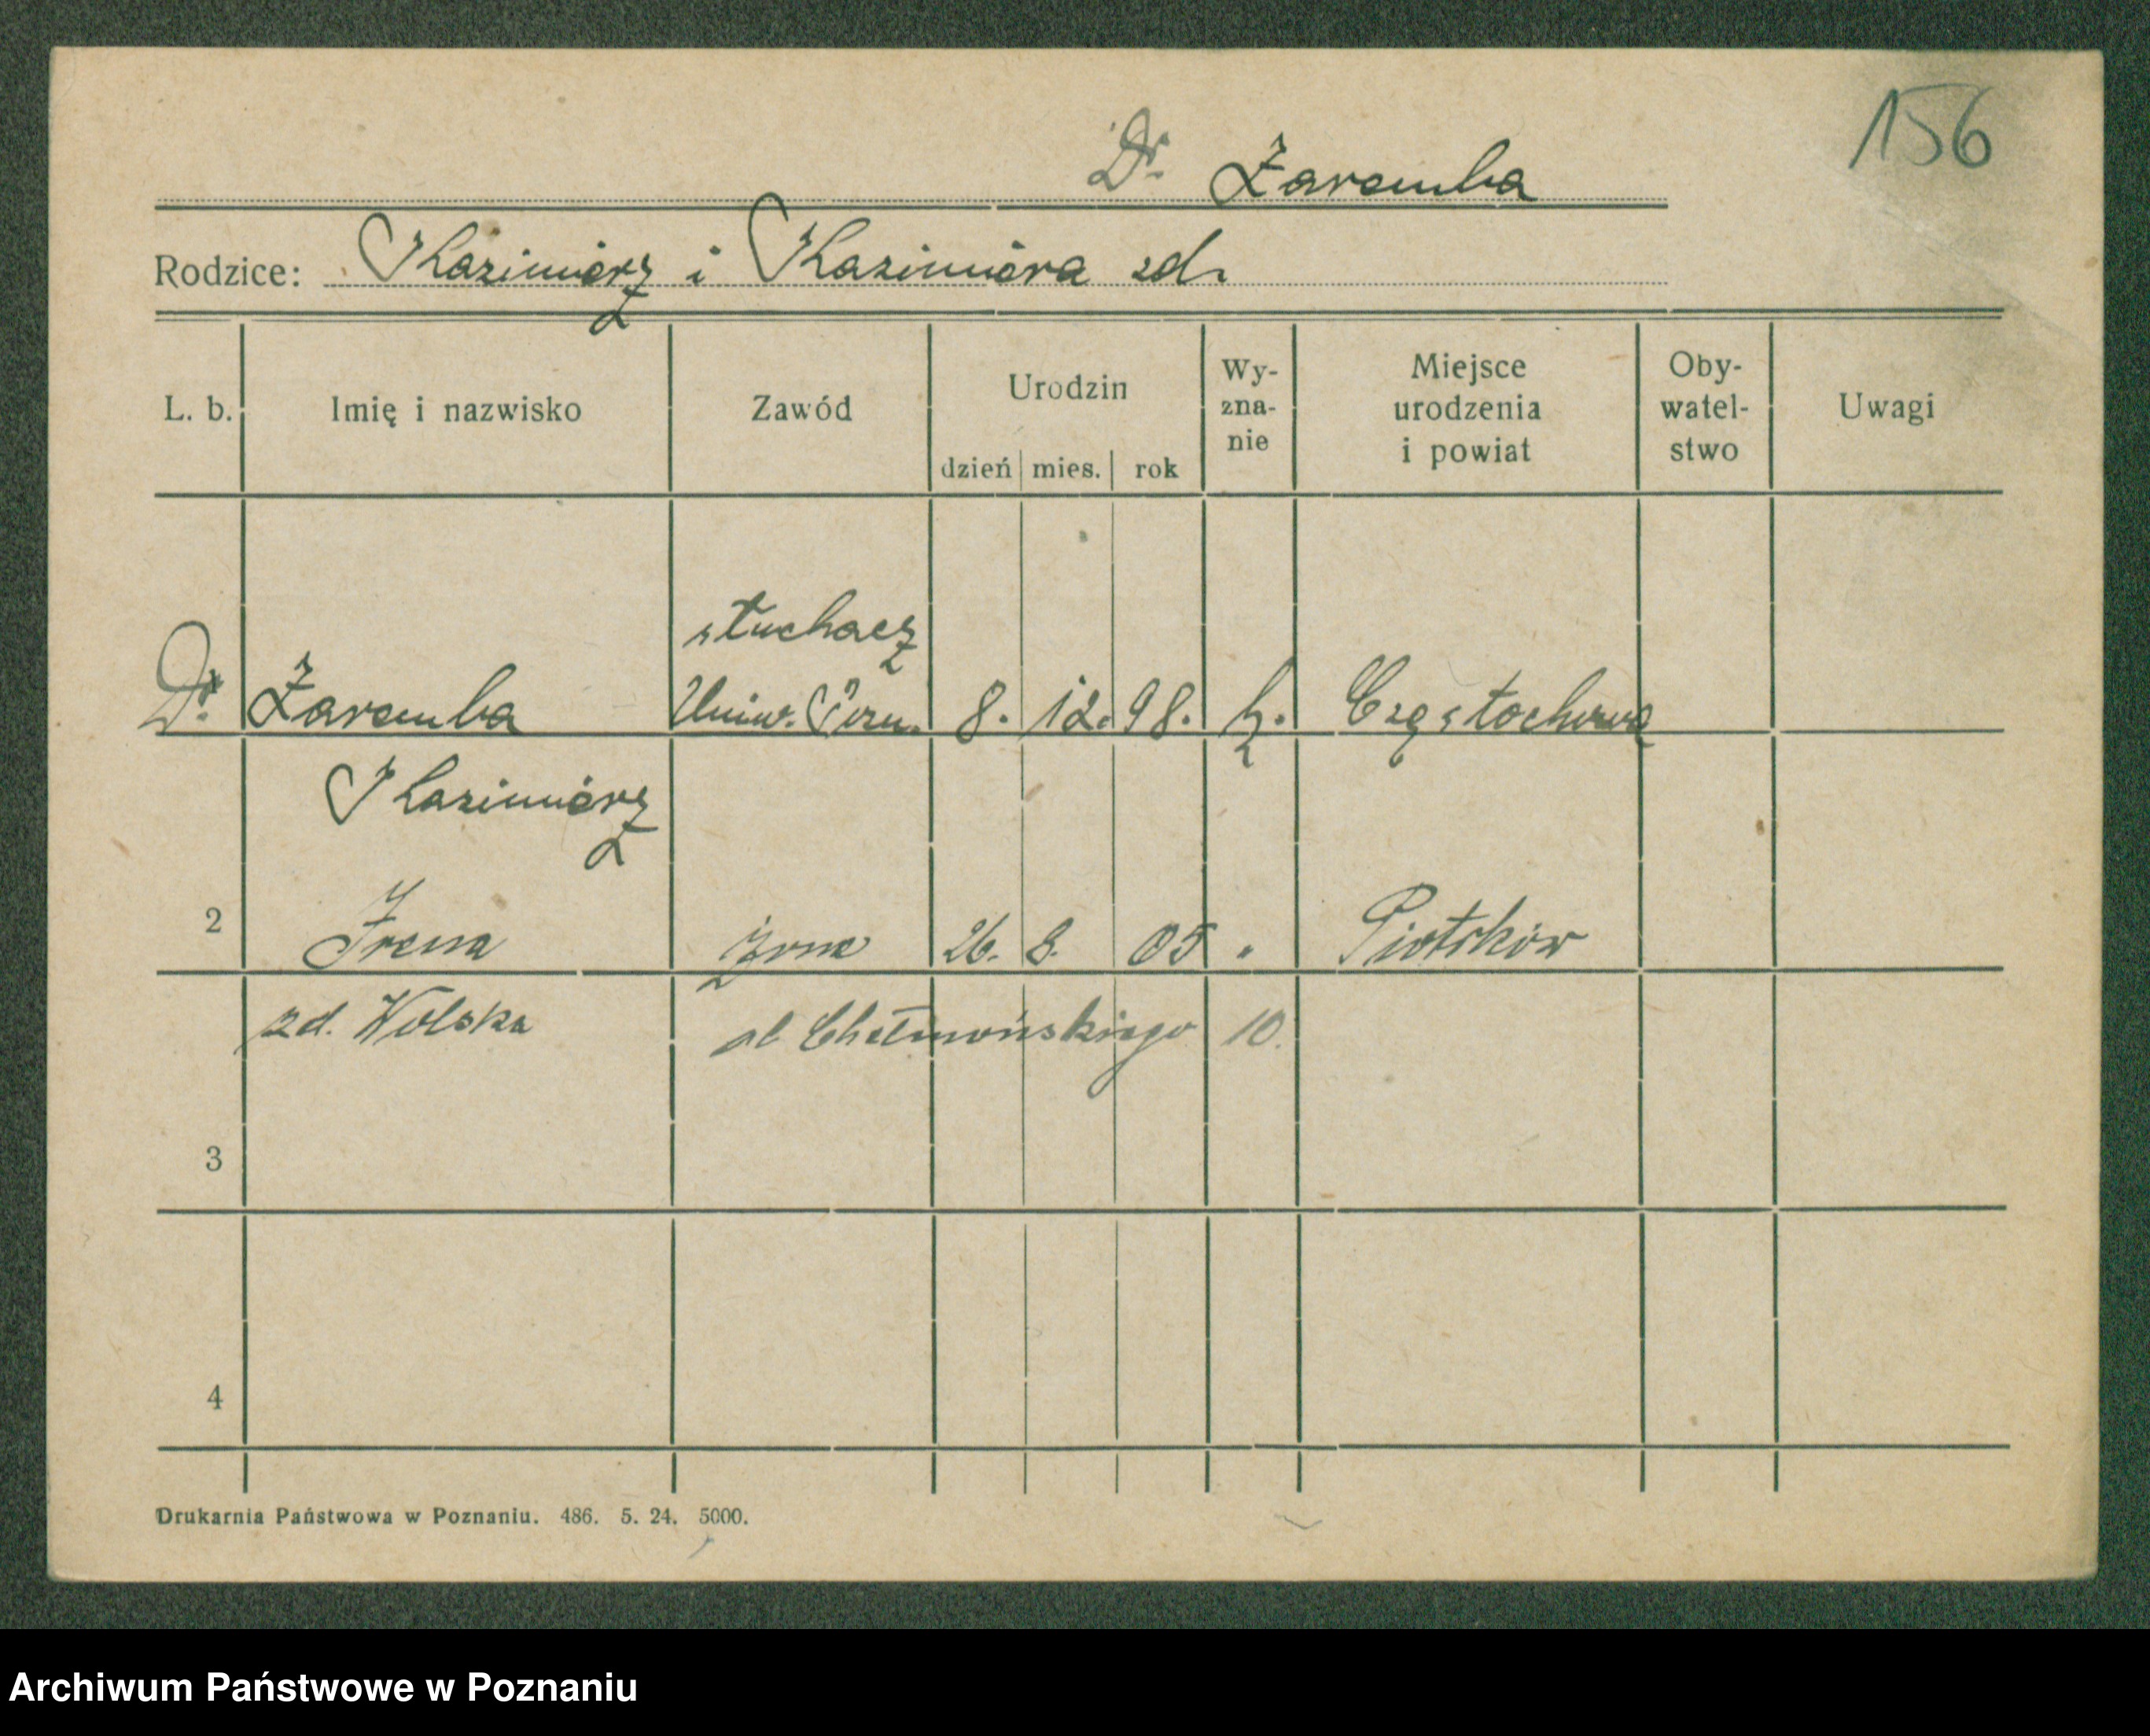 156
Dr. Zaremba
Rodzice: Kazimierz i Kazimiera zd.
L. b. Imię i nazwisko Zawód Urodzin dzień mies. rok Wy-zna-nie Miejsce urodzenia i powiat Oby-watel-stwo Uwagi
słuchacz
Dr. Zaremba Uniw. Pozn. 8. 12. 98. k. Częstochowa
Kazimierz
2 Irena żona 26. 8. 05 " Piotrków
zd. Wolska ul Chełmońskiego 10.
3
4
Drukarnia Państwowa w Poznaniu. 486. 5. 24. 5000.
Archiwum Państwowe w Poznaniu